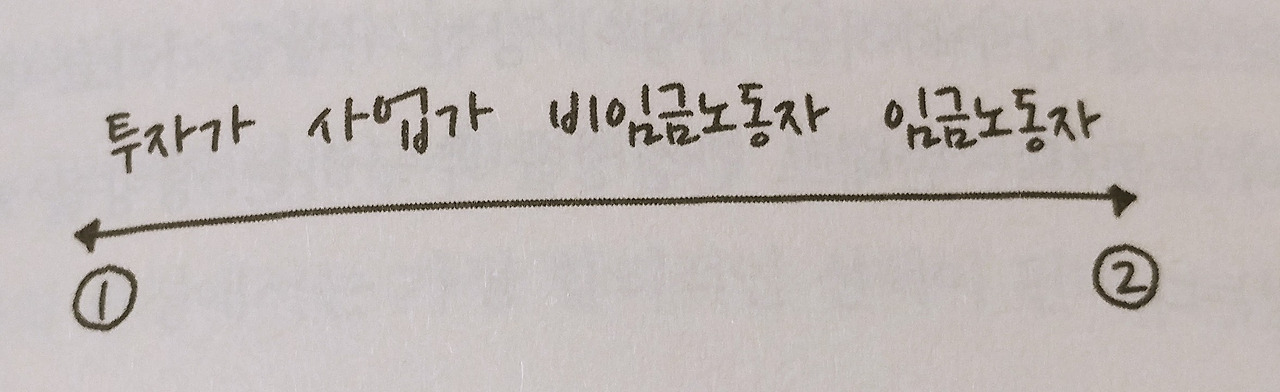 투자가 사업가 비임금노동자 임금노동자
① ②